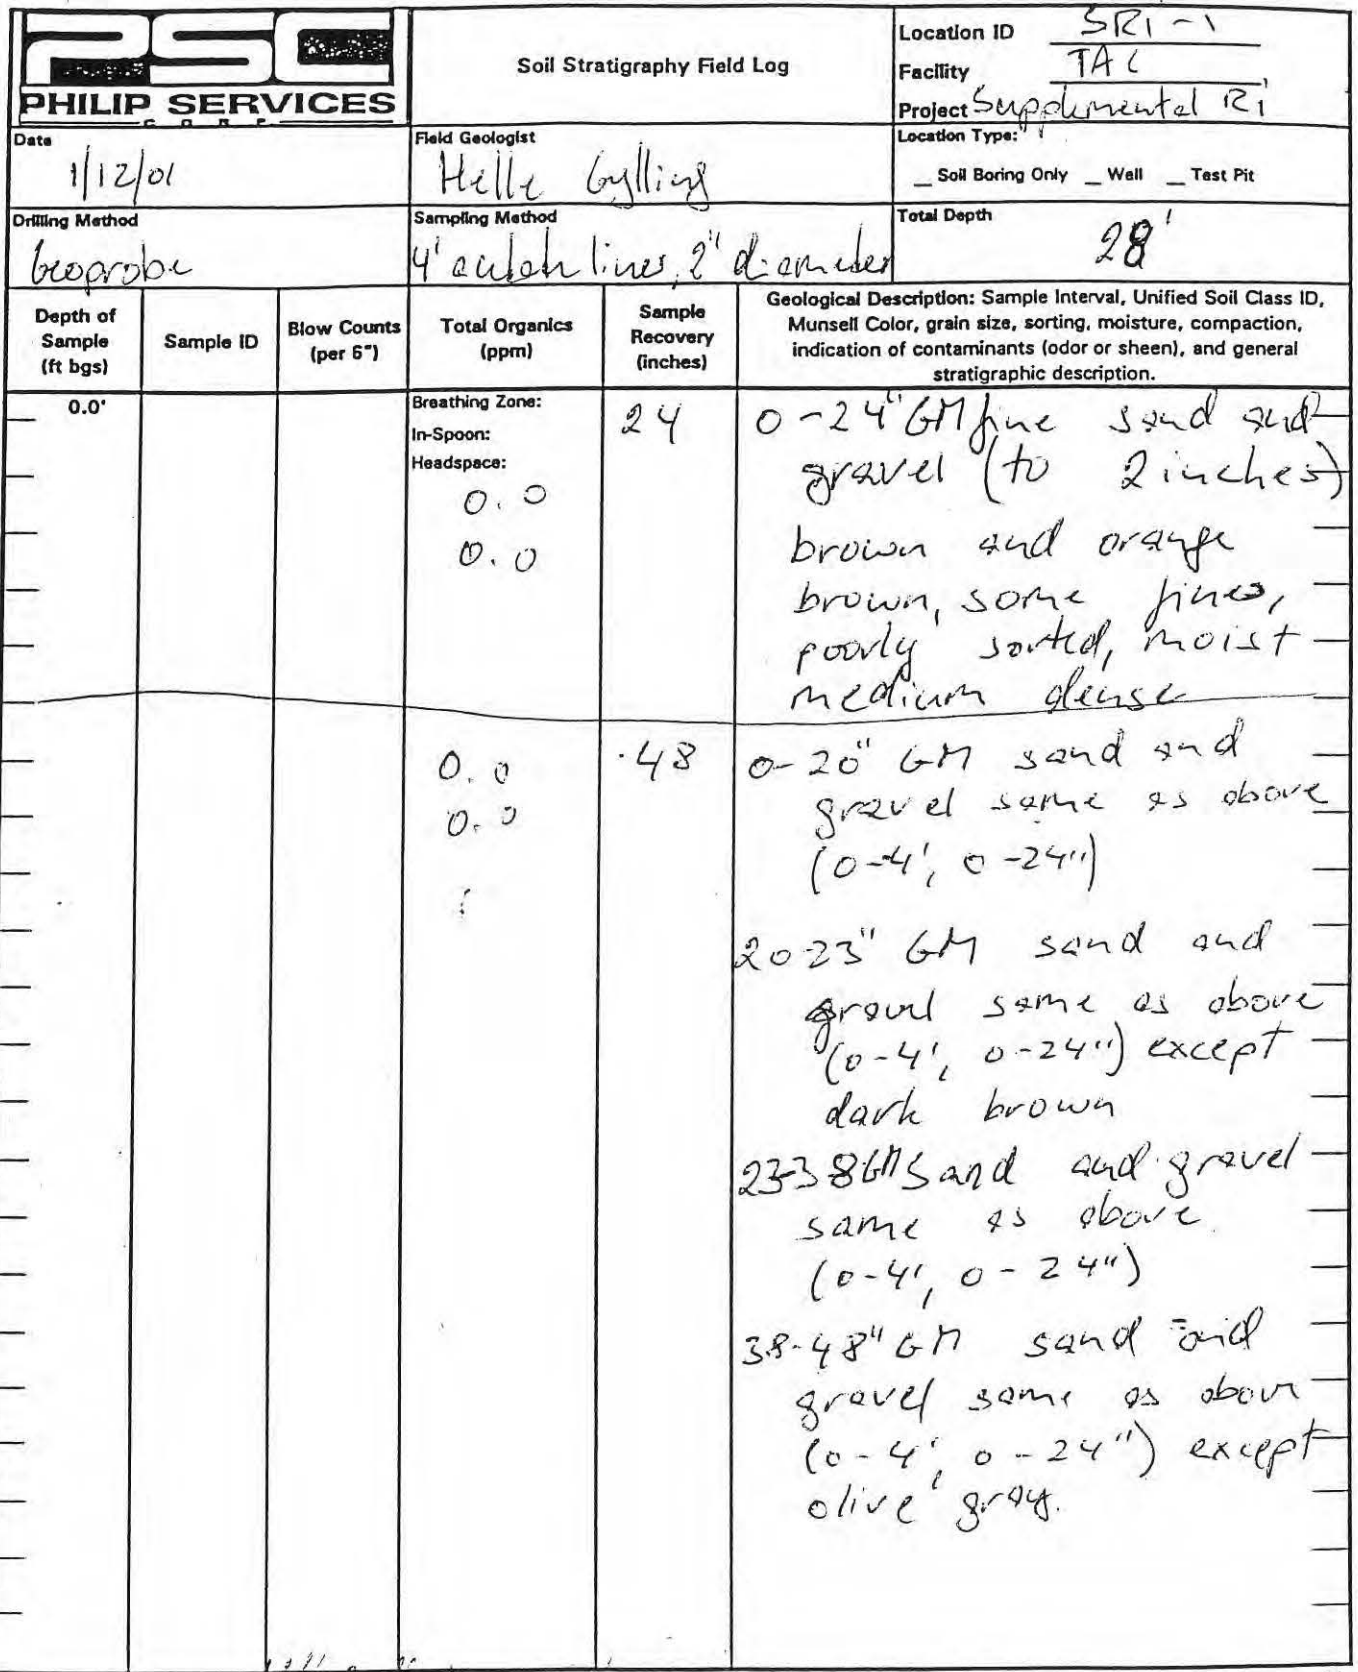 PSC
PHILIP SERVICES
CORP.
Soil Stratigraphy Field Log
Location ID SRI-1
Facility TAC
Project Supplemental RI
Date
1/12/01
Field Geologist
Helle Gylling
Location Type:
_ Soil Boring Only _ Well _ Test Pit
Drilling Method
Geoprobe
Sampling Method
4' liner, 2" diameter
Total Depth
28'
Depth of
Sample
(ft bgs)
Sample ID
Blow Counts
(per 6")
Total Organics
(ppm)
Sample
Recovery
(inches)
Geological Description: Sample Interval, Unified Soil Class ID,
Munsell Color, grain size, sorting, moisture, compaction,
indication of contaminants (odor or sheen), and general
stratigraphic description.
0.0'
Breathing Zone:
In-Spoon:
Headspace:
0.0
0.0
24
0-24" GM fine sand and
gravel (to 2 inches)
brown and orange
brown, some fines,
poorly sorted, moist
medium dense
0.0
0.0
48
0-20" GM sand and
gravel same as above
(0-4', 0-24")
20-23" GM sand and
gravel same as above
(0-4', 0-24") except
dark brown
23-38 GM sand and gravel
same as above
(0-4', 0-24")
38-48" GM sand and
gravel same as above
(0-4', 0-24") except
olive gray.